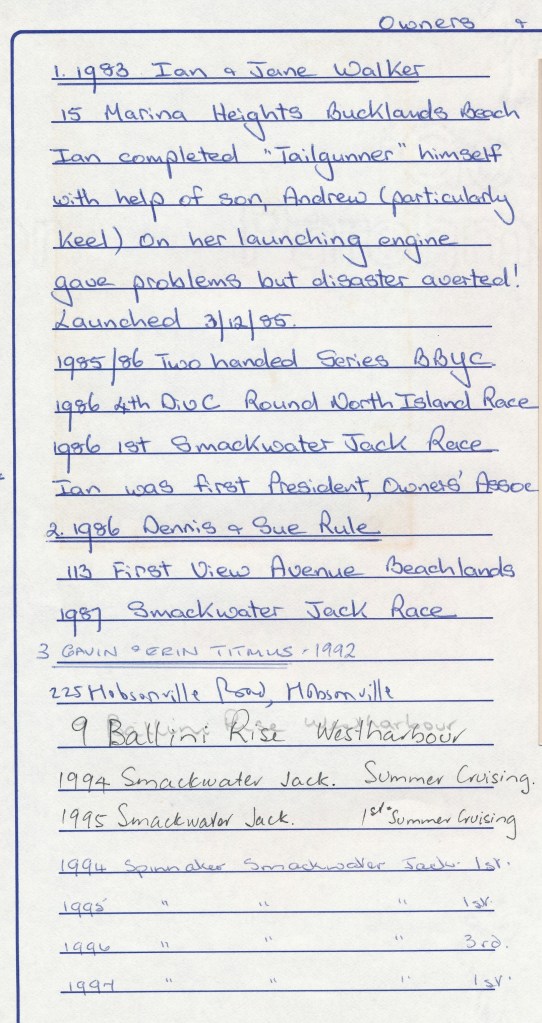 Owners &
1. 1983 Ian & Jane Walker
15 Marina Heights Bucklands Beach
Ian completed "Tailgunner" himself
with help of son, Andrew (particularly
keel) On her launching engine
gave problems but disaster averted!
Launched 3/12/85.
1985/86 Two handed Series BBYC
1986 4th Div C Round North Island Race
1986 1st Smackwater Jack Race
Ian was first President, Owners' Assoc
2. 1986 Dennis & Sue Rule
113 First View Avenue Beachlands
1987 Smackwater Jack Race
3 GAVIN & ERIN TITMUS - 1992
225 Hobsonville Road, Hobsonville
9 Ballini Rise Westharbour
1994 Smackwater Jack. Summer Cruising.
1995 Smackwater Jack. 1st Summer Cruising
1994 Spinnaker Smackwater Jack. 1st.
1995 " " " 1st.
1996 " " " 3rd.
1997 " " " 1st.